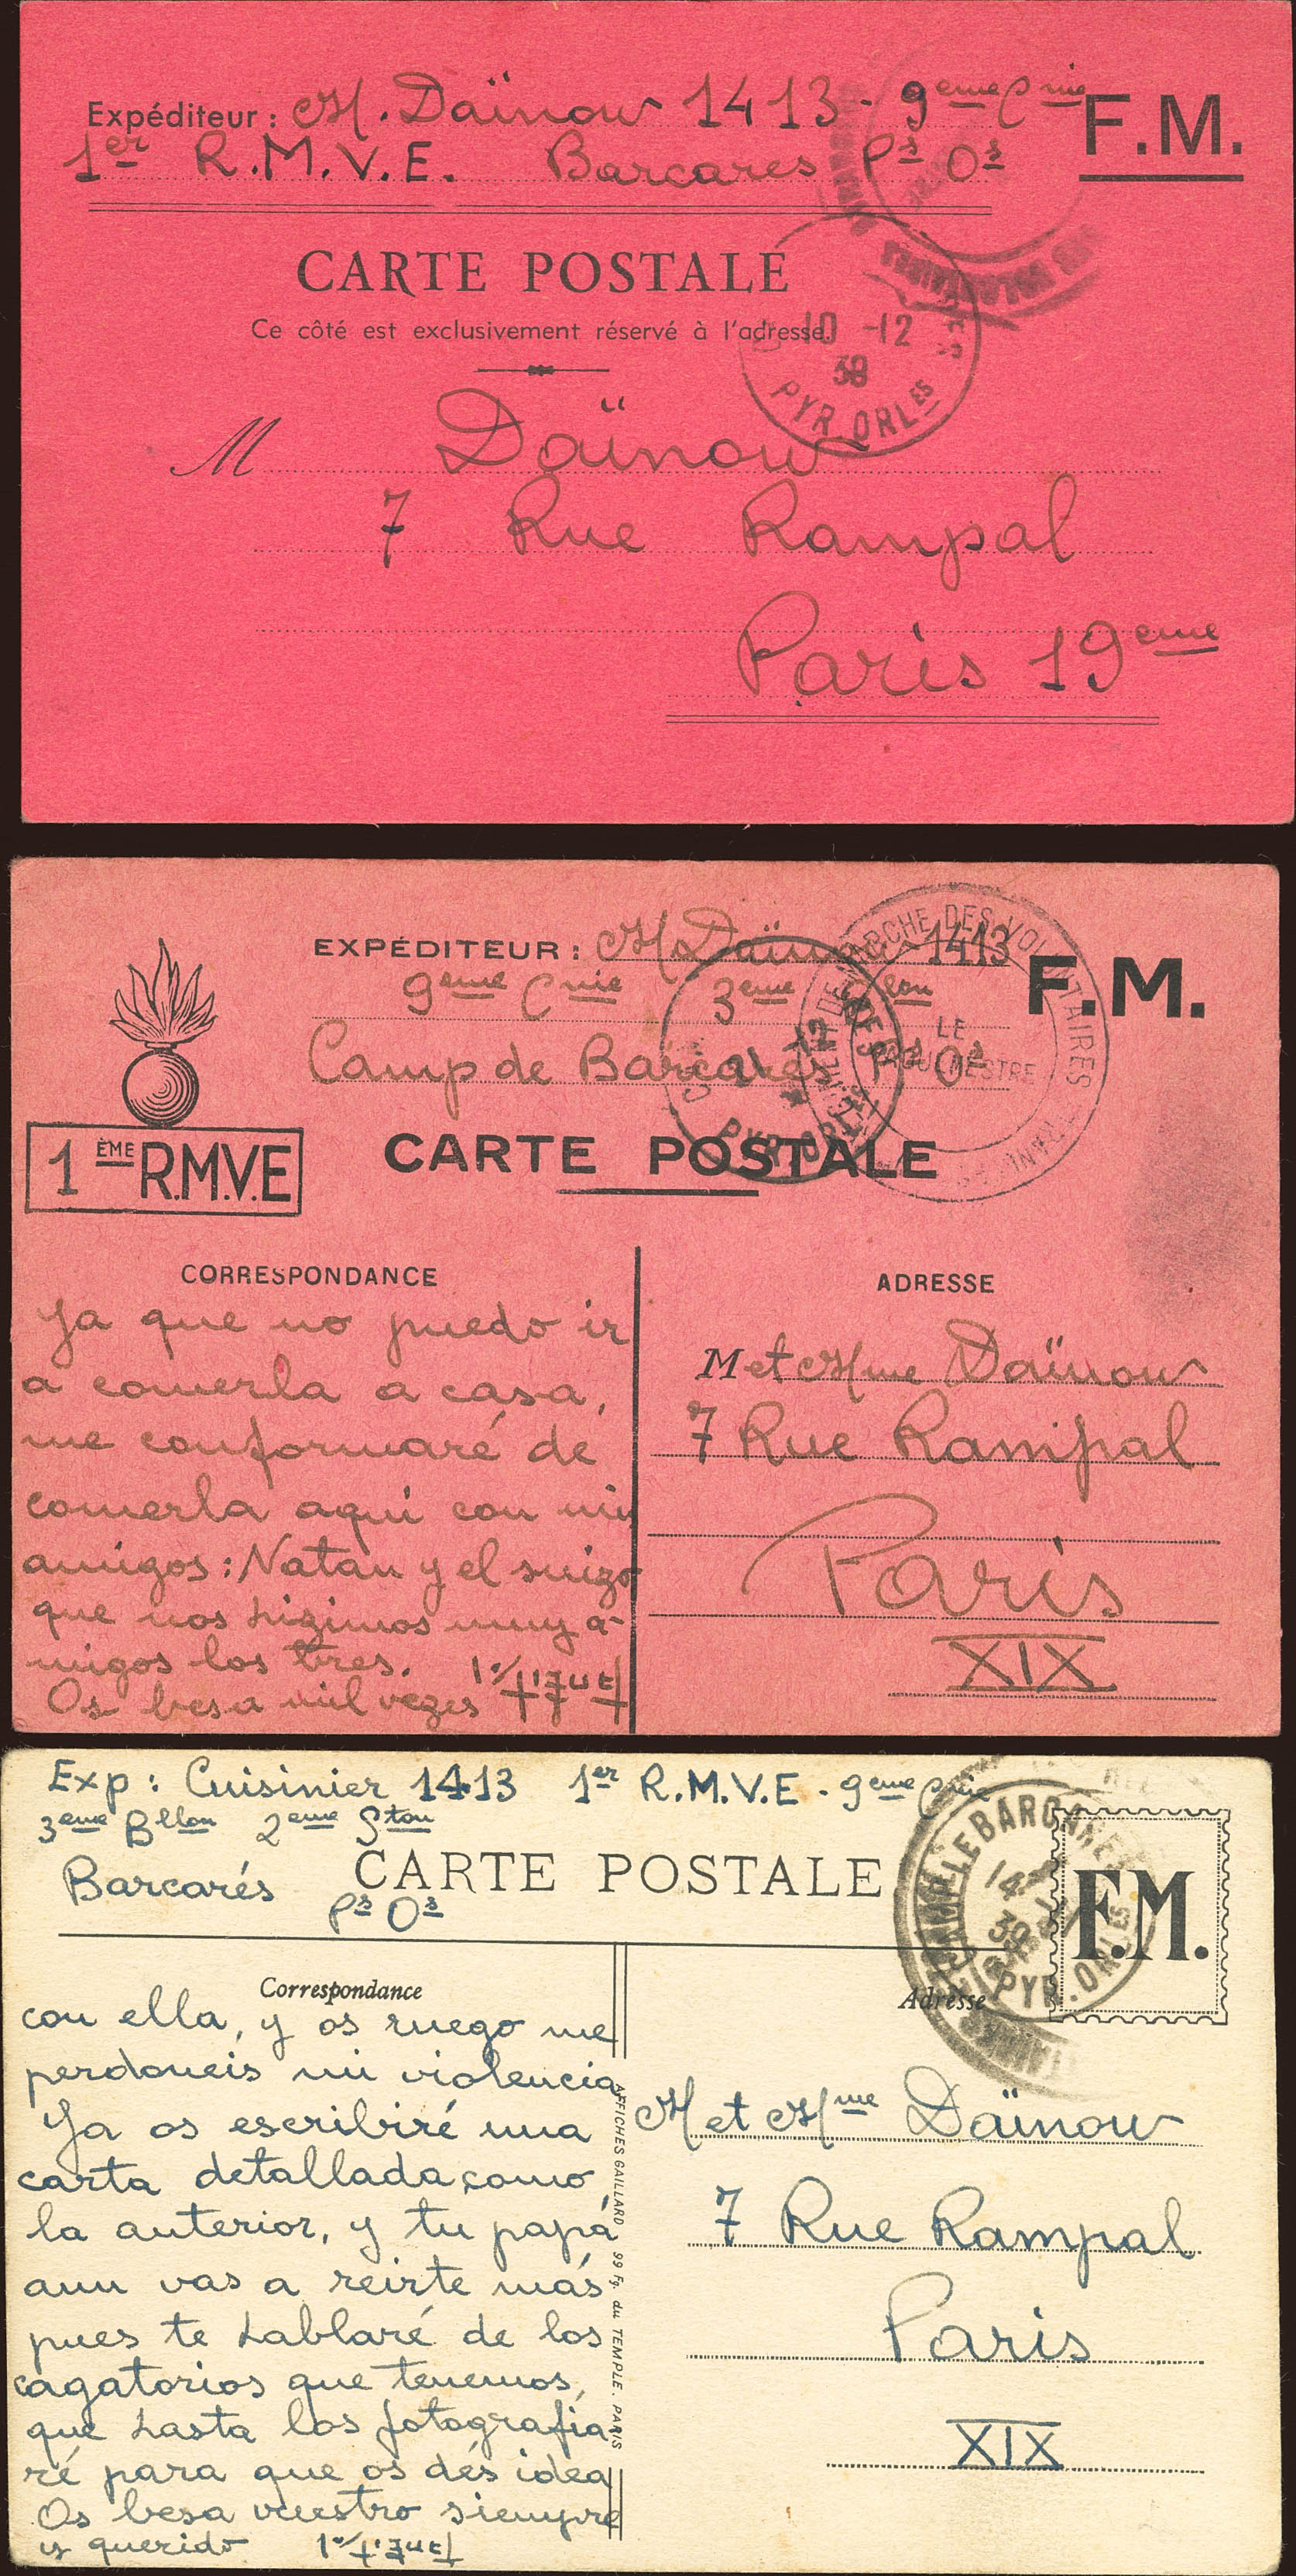 Expéditeur : M. Daïnow 1413 - 9eme Cnie
F.M.
1er R.M.V.E. Barcares Ps Os
CARTE POSTALE
Ce côté est exclusivement réservé à l'adresse.
10 -12
39
PYR. ORLES
M Daïnow
7 Rue Rampal
Paris 19eme
EXPÉDITEUR : M Daïnow 1413
F.M.
9eme Cnie 3eme Bllon
Camp de Barcarés Ps Os
MARCHE DES VOLONTAIRES
LE
VAGUEMESTRE
PYR. ORL
1 ÈME R.M.V.E
CARTE POSTALE
CORRESPONDANCE
Ya que no puedo ir
a comerla a casa,
me conformaré de
comerla aqui con mis
amigos: Natan y el suizo
que nos hizimos muy a-
migos los tres.
Os besa mil vezes
ADRESSE
M et Mme Daïnow
7 Rue Rampal
Paris
XIX
Exp: Cuisinier 1413 1er R.M.V.E - 9eme Cnie
3eme Bllon 2eme Ston
Barcarés
Ps Os
CARTE POSTALE
F.M.
CAMP LE BARCARES
14
39
PYR. ORLES
Correspondance
con ella, y os ruego me
perdoneis mi violencia
Ya os escribiré una
carta detallada como
la anterior, y tu papá
aun vas a reirte más
pues te hablaré de los
cagatorios que tenemos,
que hasta los fotografia
ré para que os dés idea
Os besa vuestro siempre
y querido
AFFICHES GAILLARD 99 Fg. du TEMPLE. PARIS
Adresse
M et Mme Daïnow
7 Rue Rampal
Paris
XIX